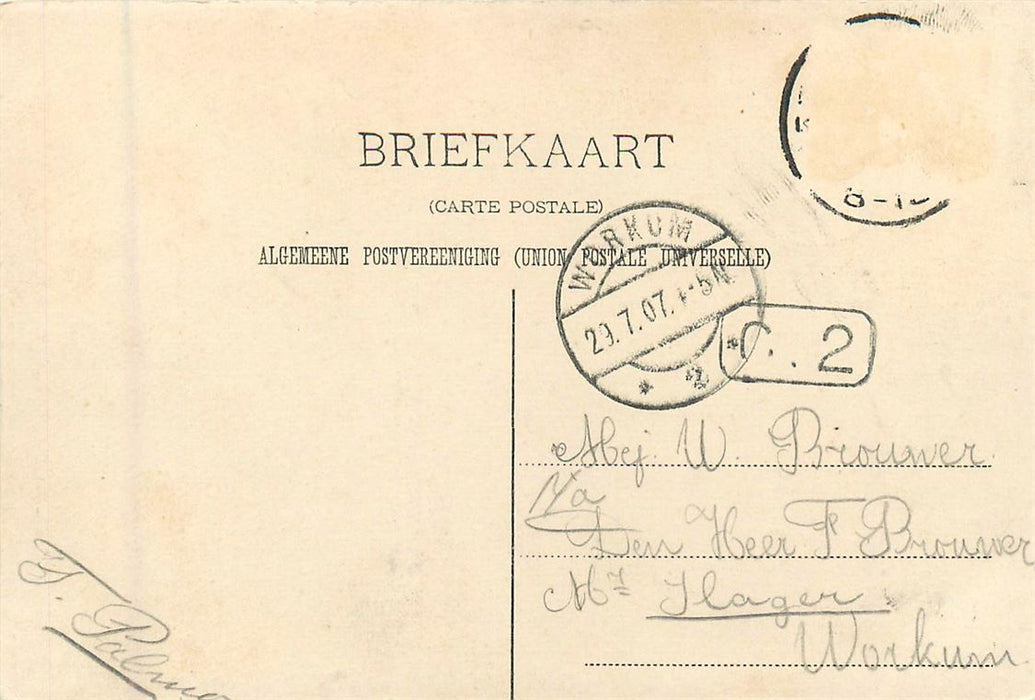 BRIEFKAART
(CARTE POSTALE)
ALGEMEENE POSTVEREENIGING (UNION POSTALE UNIVERSELLE)
WORKUM
29.7.07. 5N
2
8-10
C. 2
Mej. W. Brouwer
p/a
Den Heer F Brouwer
Mr Slager
Workum
T. Palma